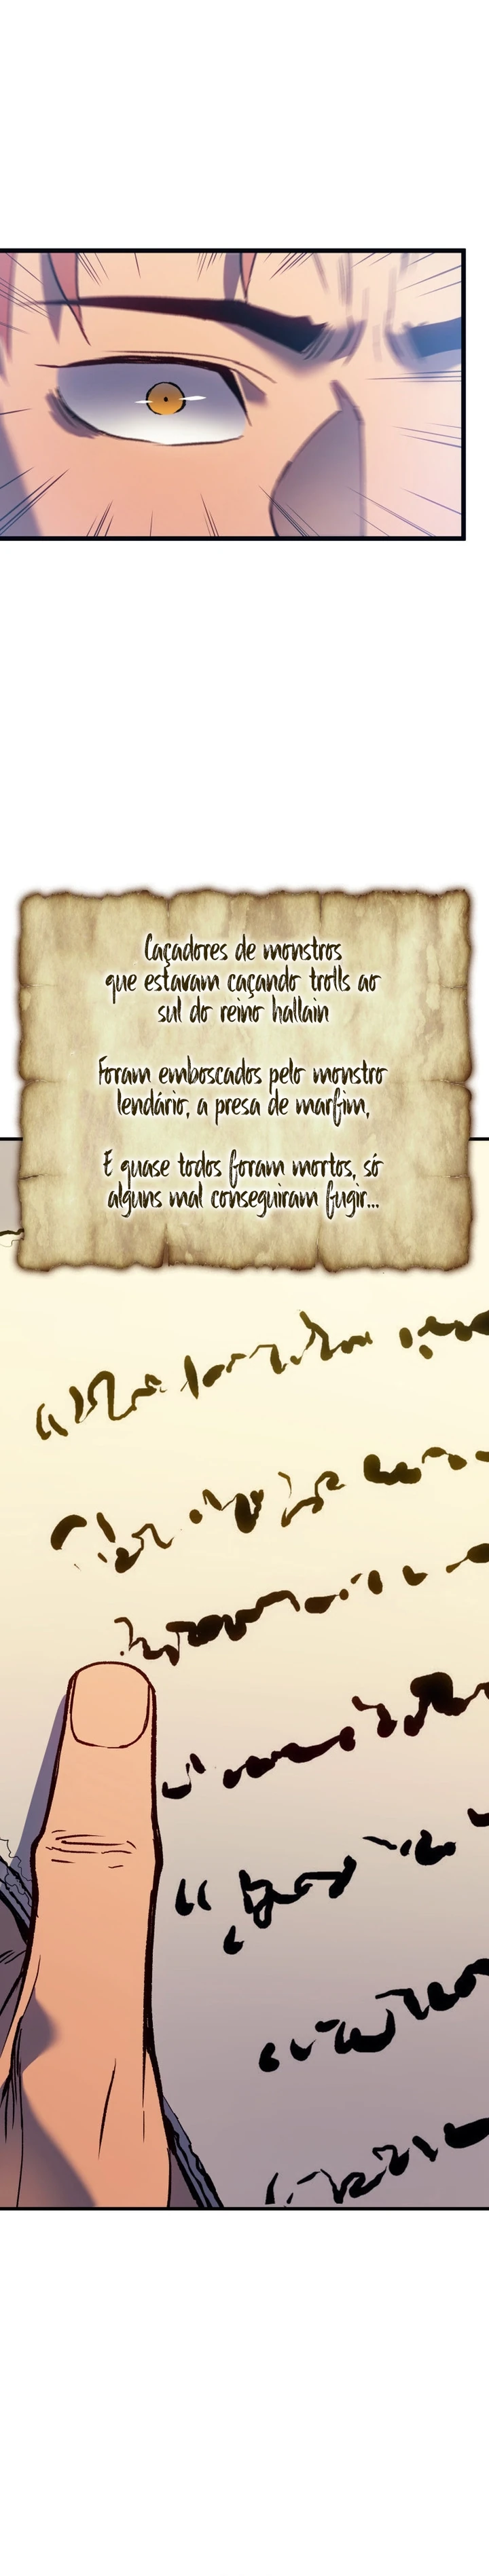 Caçadores de monstros
que estavam caçando trolls ao
sul do reino hallain
Foram emboscados pelo monstro
lendário, a presa de marfim,
E quase todos foram mortos, só
alguns mal conseguiram fugir...